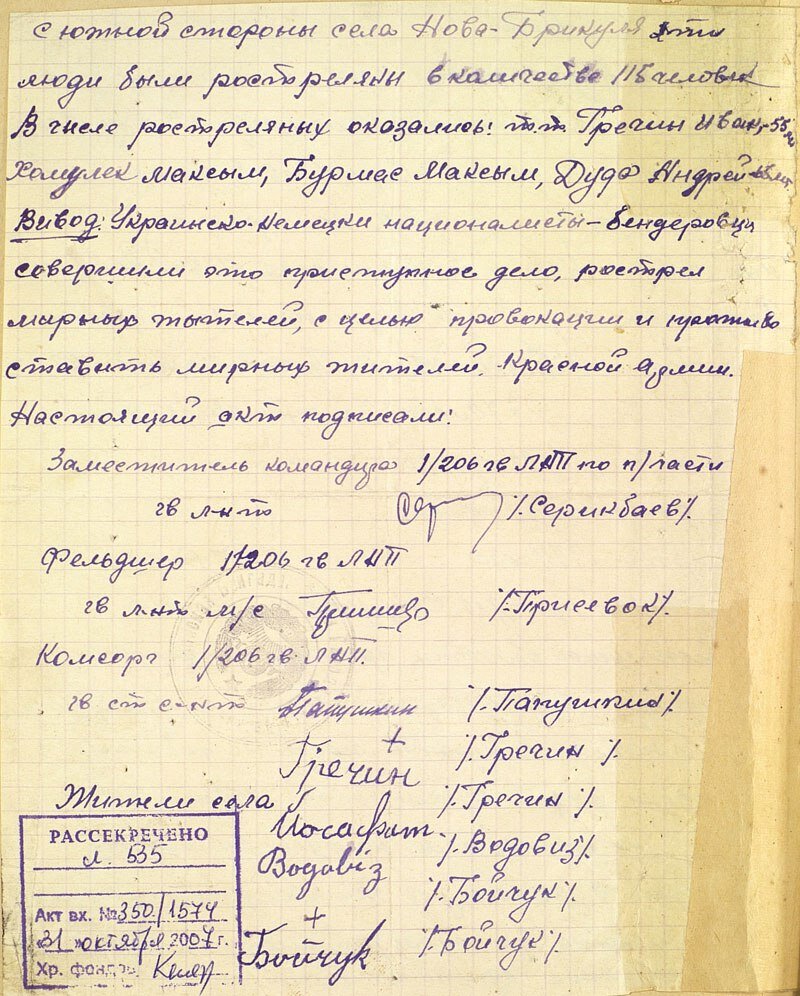 с южной стороны села Нова-Брикуля эти
люди были ростреляны в количестве 115 человек
В числе ростреляных оказались: т.т. Гречин Иван-55 л
Хомулек Максым, Бурмас Максым, Дуда Андрей лет
Вивод: Украинско-немецки националисты-бендеровци
совершили это приступное дело, рострел
мирных жытелей, с целью провокации и противо
ставить мирных жителей. Красной армии.
Настоящий акт подписали:
Заместитель командира 1/206 гв ЛАП по п/части
гв л-нт /.Серикбаев/.
Фельдшер 1/206 гв ЛАП
гв л-нт м/с /.Присевок/.
Комсорг 1/206 гв ЛАП.
гв ст с-нт Папушкин /.Папушкин/.
+
Гречин /.Гречин/.
Жители села
Йосафат /.Гречин/.
Водовіз /.Водовиз/.
/.Бойчук/.
+
Бойчук /.Бойчук/.
РАССЕКРЕЧЕНО
л. 535
Акт вх. № 350/1574
«31» октября 2007 г.
Хр. фондов